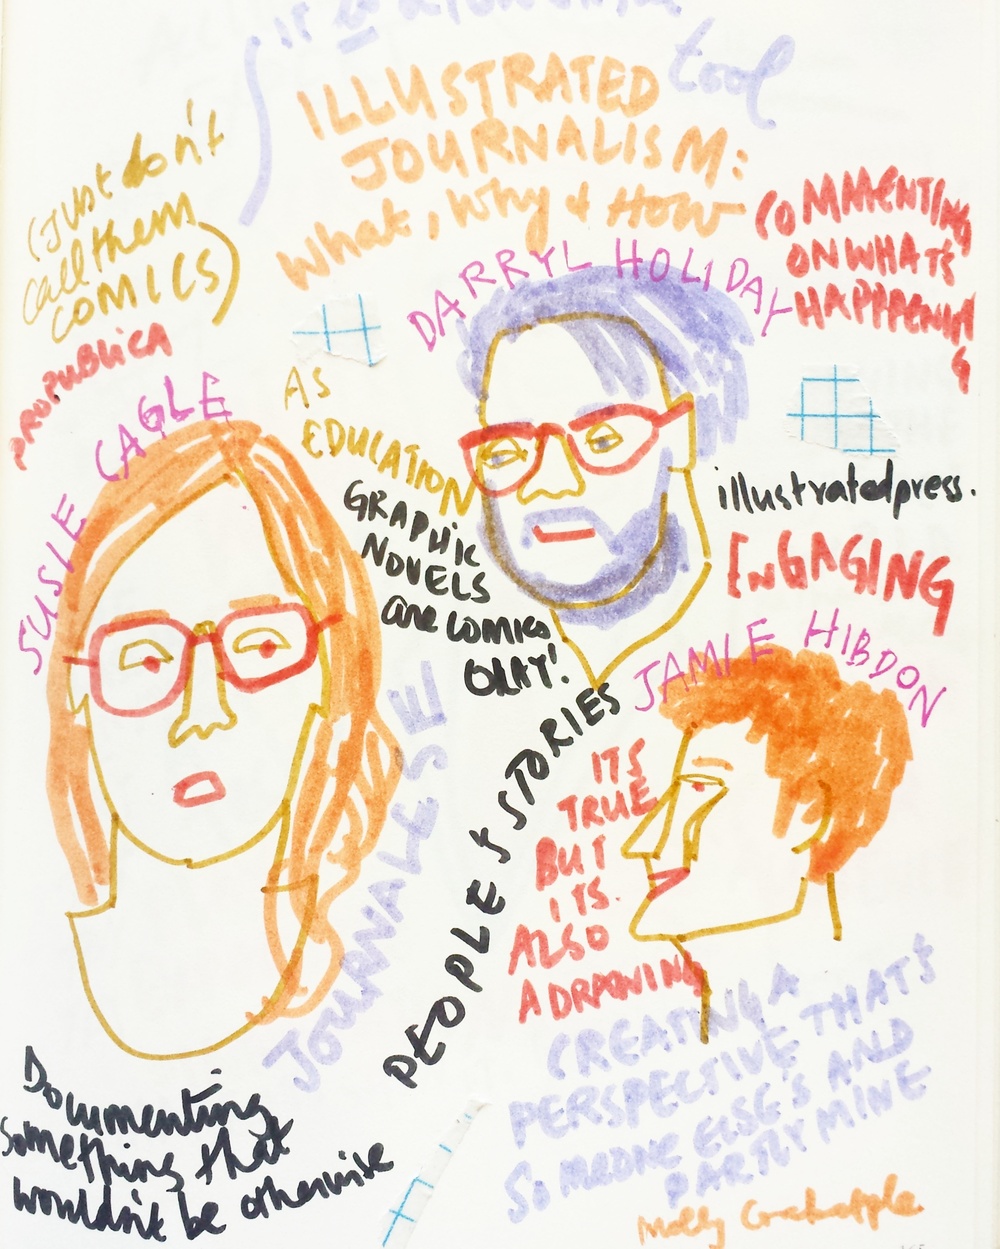 it is a
tool
ILLUSTRATED
JOURNALISM:
What, Why & How
(JUST don't
call them
COMICS)
COMMENTING
ON WHATS
HAPPPENIN
G
DARRYL HOLIDAY
PROPUBLICA
SUSIE CAGLE
AS
EDUCATION
GRAPHIC
NOVELS
are comics
OKAY!
illustratedpress.
ENGAGING
JAMIE HIBDON
JOURNALESE
PEOPLE'S STORIES
ITS
TRUE
BUT
ITS.
ALSO
A DRAWING
CREATING A
PERSPECTIVE THAT'S
SOMEONE ELSE'S AND
PARTLY MINE
Documenting
something that
wouldn't be otherwise
Molly Crabapple